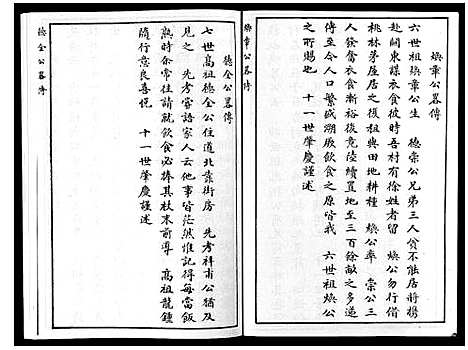 煥章公畧傳
六世祖煥章公生　德崇公兄弟三人貧不能居將攜
赴關東謀衣食彼時吾村有徐姓者留　煥公勿行借
桃林茅屋居之後租與田地耕種　煥公率　崇公三
人發奮衣食漸裕後竟陸續置地至三百餘畝之多遞
傳至今人口繁盛溯厥飲食之原皆我　六世祖煥公
之所賜也　十一世肇慶謹述
煥章公畧傳
德全公畧傳
七世高祖德全公住道北靠街房　先考祥甫公猶及
見之　先考嘗語家人云他事皆茫然惟記得每當飯
熟時余常往請就飲食必捧其杖末前導　高祖龍鍾
隨行意良喜悅　十一世肇慶謹述
德全公畧傳